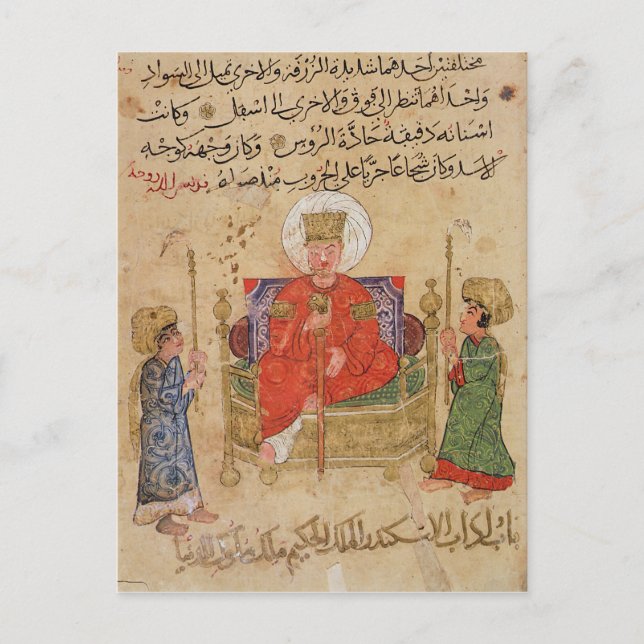 مختلفتين احدهما شديدة الزرقة والاخرى تميل الى السواد
واحداهما تنظر الى فوق والاخرى الى اسفل وكانت
اسنانه دقيقة حادة الروس وكان وجهه كوجه
الاسد وكان شجاعا جريا على الحروب منذ صباه قدس الله روحه
باب اداب الاسكندر الملك الحكيم ملك ملوك الدنيا